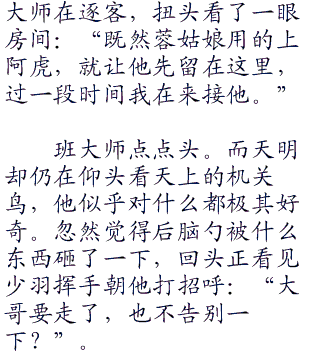 大师在逐客，扭头看了一眼
房间：“既然蓉姑娘用的上
阿虎，就让他先留在这里，
过一段时间我在来接他。”
班大师点点头。而天明
却仍在仰头看天上的机关
鸟，他似乎对什么都极其好
奇。忽然觉得后脑勺被什么
东西砸了一下，回头正看见
少羽挥手朝他打招呼：“大
哥要走了，也不告别一
下？”。